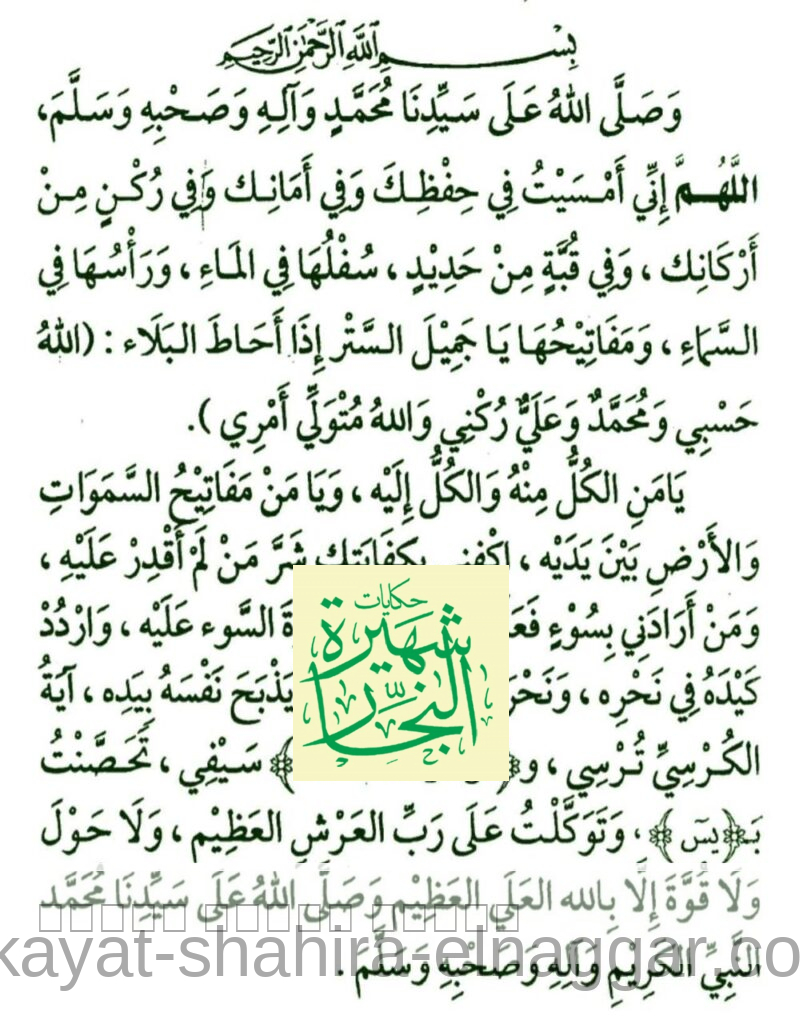 بِسْمِ اللَّهِ الرَّحْمَٰنِ الرَّحِيمِ
وَصَلَّى اللهُ عَلَى سَيِّدِنَا مُحَمَّدٍ وَآلِهِ وَصَحْبِهِ وَسَلَّمَ،
اللَّهُمَّ إِنِّي أَمْسَيْتُ فِي حِفْظِكَ وَفِي أَمَانِكَ وَفِي رُكْنٍ مِنْ
أَرْكَانِك ، وَفِي قُبَّةٍ مِنْ حَدِيْدٍ ، سُفْلُهَا فِي المَاءِ ، وَرَأْسُهَا فِي
السَّمَاءِ ، وَمَفَاتِيْحُهَا يَا جَمِيْلَ السَّتْر إِذَا أَحَاطَ البَلَاء : (اللهُ
حَسْبِي وَمُحَمَّدٌ وَعَلَيٌّ رُكْنِي وَاللهُ مُتْوَلِّي أَمْرِي ).
يَامَنِ الكُلُّ مِنْهُ وَالكُلُّ إِلَيْه ، وَيَا مَنْ مَفَاتِيْحُ السَّمَوَاتِ
وَالأَرْضِ بَيْنَ يَدَيْه ، اكْفِنِي بِكِفَايَتِك شَرَّ مَنْ لَمْ أَقْدِرْ عَلَيْهِ ،
وَمَنْ أَرَادَنِي بِسُوْءٍ السَّوء عَلَيْه ، وَارْدُدْ
كَيْدَهُ فِي نَحْرِه ، يَذْبَحَ نَفْسَهُ بِيَدِه ، آيَةُ
الكُرْسِيِّ تُرْسِي ، و﴿ ﴾ سَيْفِي ، تَحَصَّنْتُ
بـ﴿يسٓ﴾ ، وَتَوَكَّلْتُ عَلَى رَبِّ العَرْشِ العَظِيْم ، وَلَا حَوْلَ
وَلَا قُوَّةَ إِلَّا بِالله العَلَي العَظِيْم وَصَلَّى اللهُ عَلَى سَيِّدِنَا مُحَمَّد
النَّبِيِّ الكَرِيْمِ وَآلِهِ وَصَحْبِهِ وَسَلَّمَ .
حكايات
شهيرة
النجار
kayat-shahira-elnaggar.co